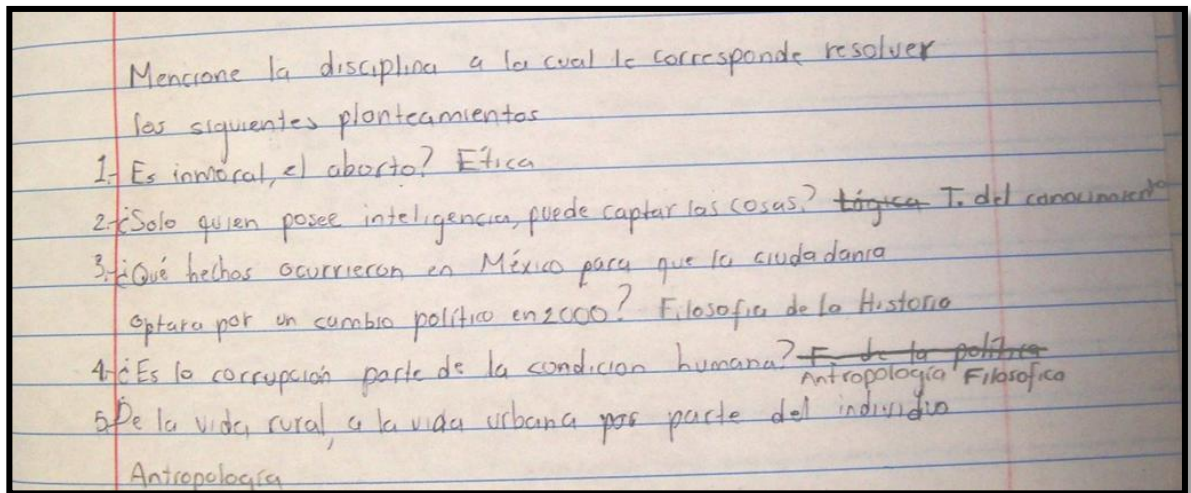 Mencione la disciplina a la cual le corresponde resolver
los siguientes planteamientos
1.- Es inmoral, el aborto? Ética
2.-¿Solo quien posee inteligencia, puede captar las cosas? Lógica T. del conocimiento
3.-¿Qué hechos ocurrieron en México para que la ciudadanía
optara por un cambio político en 2000? Filosofia de la Historia
4.-¿Es la corrupción parte de la condicion humana? F. de la política
Antropología Filosofica
5.De la vida rural, a la vida urbana por parte del individuo
Antropología